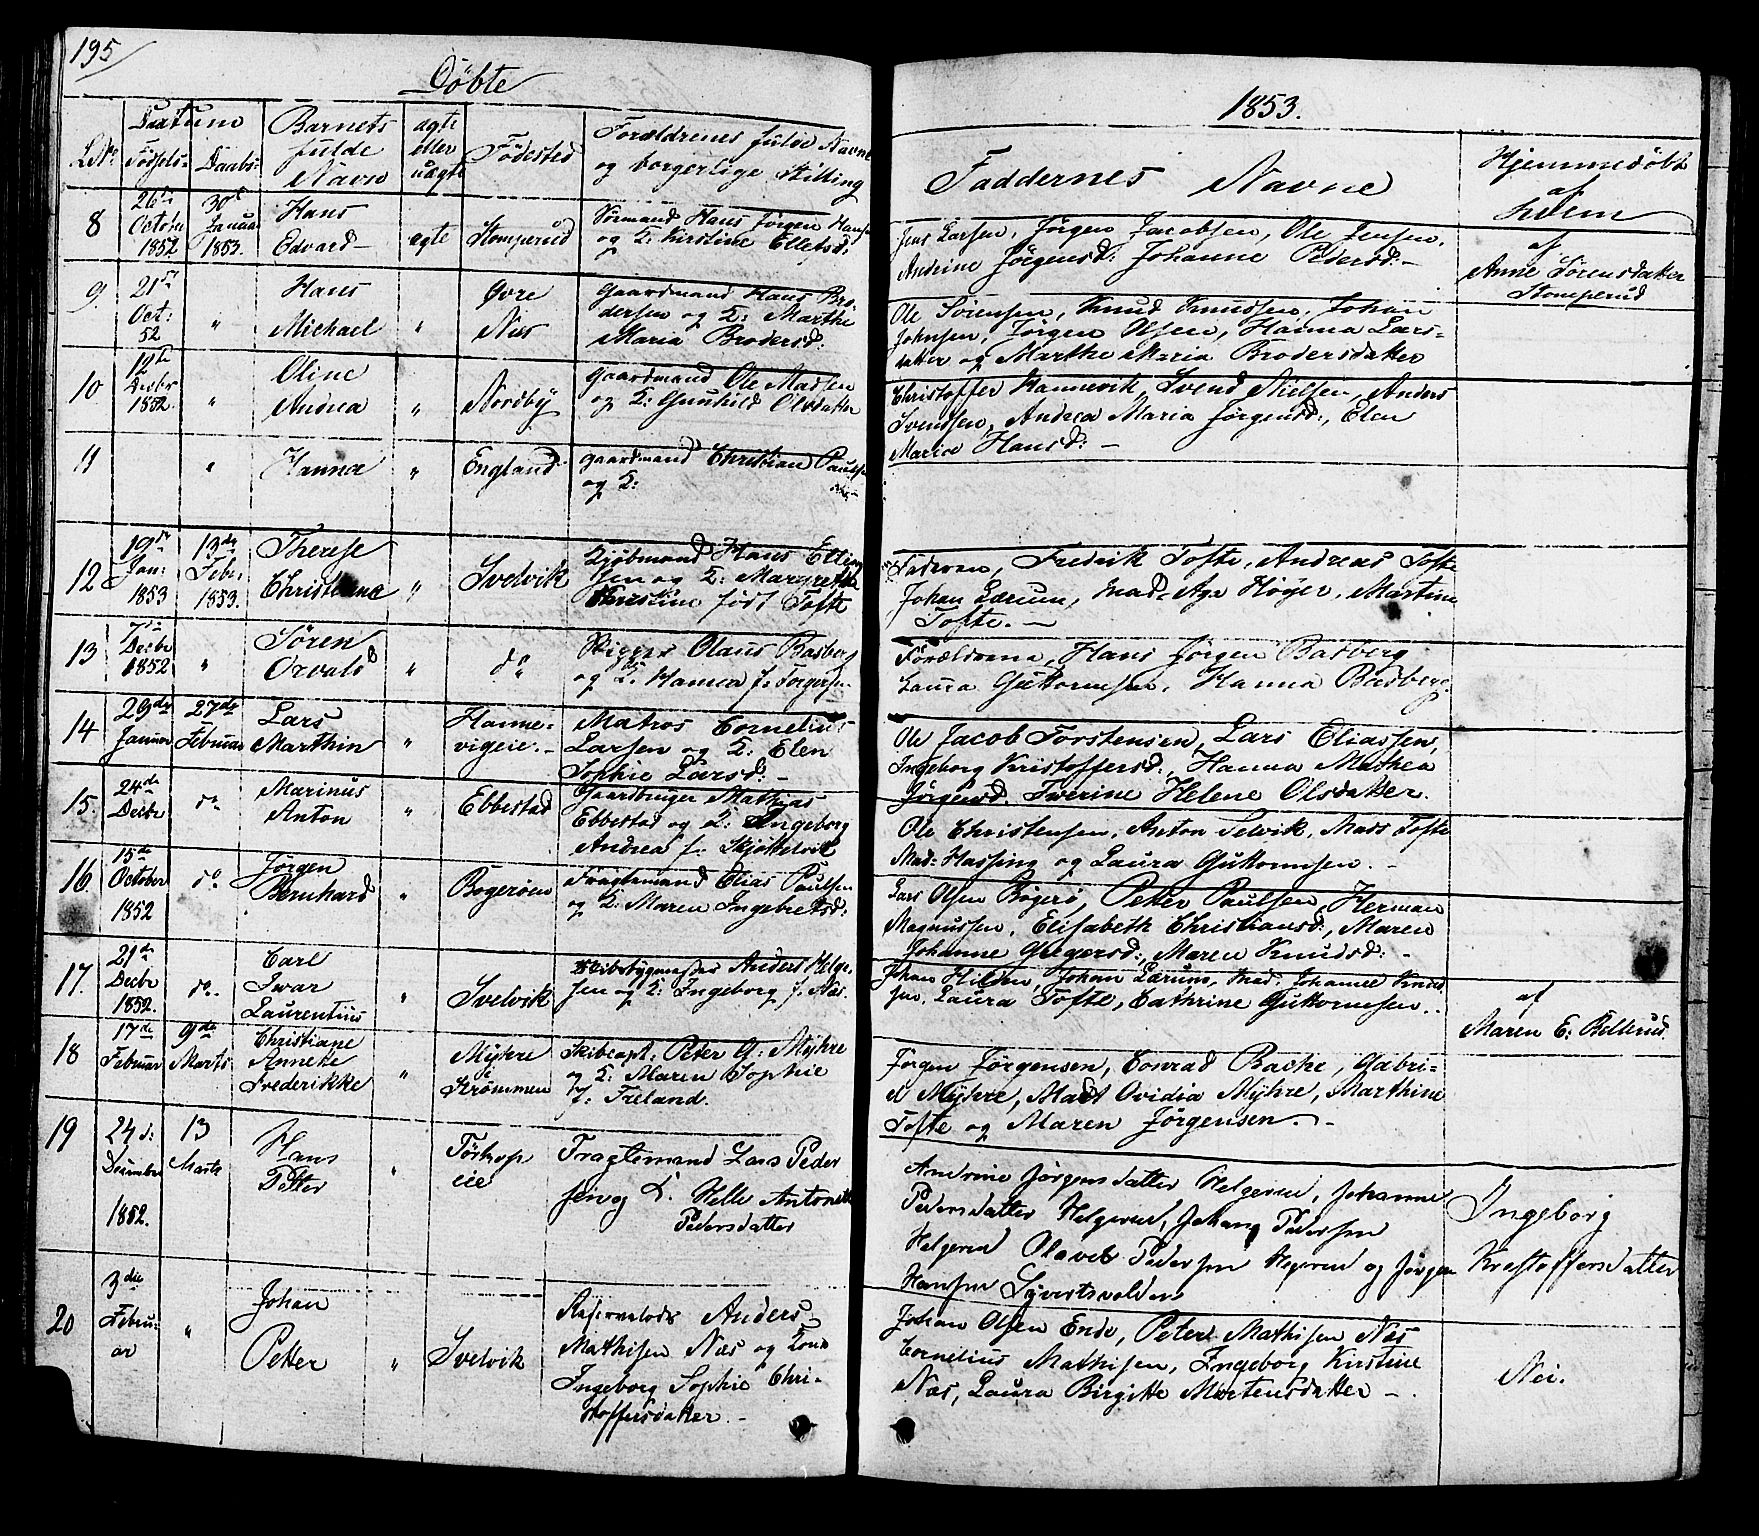 195
Döbte
1853.
L.No.
Datum
Födsels-
Daabs-
Barnets
fulde
Navn
ægte
eller
uægte
Födested
Forældrenes fulde Navne
og borgerlige Stilling
Faddernes Navne
Hjemmedöbt
af
hvem
8
26de
October
1852
30te
Januar
1853.
Hans
Edvard
ægte
Stomperud
Hans Jörgen Hansen
og K: Kirstine Ellefsd:
Jens Larsen, Jörgen Jacobsen, Ole Jensen,
Andrine Jörgensd: Johanne Pedersd: –
af
Anne Sörensdatter
Stomperud
9.
21de
Oct:
52
"
Hans
Michael
"
Øvre
Næs
Gaardmand Hans Bro-
dersen og K: Marthe
Maria Brodersd:
Ole Sörensen, Knud Knudsen, Johan
Johnsen, Jörgen Olsen, Hanna Lars-
datter og Marthe Maria Brodersdatter
10
12te
Decbr
1852.
"
Oline
Andrea
"
Nordby
Gaardmand Ole Madsen
og K: Gunhild Olsdatter
Christoffer Hannevik, Svend Nielsen, Anders
Svendsen, Andrea Maria Jörgensd:, Elen
Marie Hansd: –
11
"
Hanna
"
England
Gaardmand Christian Paulsen
og K:
12
19de
Jan:
1853
13de
Febr.
1853.
Therese
Christiane
"
Svelvik
Kjöbmand Hans Elling-
sen og K: Margrethe
Christine födt Tofte
Faderen, Fredrik Tofte, Andreas Tofte
Johan Lærum, Mad. Aga Höyer, Martine
Tofte. –
13
7de
Decbr
1852
"
Sören
Orvald
"
do
Olaus Basberg
og K: Hanna f. Torgersen
Forældrene, Hans Jörgen Basberg
Laura Guttormsen, Hanna Basberg.
14
29de
Januar
27de
Februar
Lars
Marthin
"
Hanne-
vigeie. –
Matros Cornelius
Larsen og K: Elen
Sophie Larsd: –
Ole Jacob Torstensen, Lars Eliassen,
Ingeborg Kristoffersd:, Hanna Mathea
Jörgensd: Severine Helene Olsdatter.
15.
24de
Decbr
do
Marinus
Anton
"
Ebbestad
Gaardbruger Mathias
Ebbestad og K: Ingeborg
Andrea f. Skjöttelvik
Ole Christensen, Anton Selvik, Mads Tofte
Mad: Hassing og Laura Guttormsen. –
16.
15de
October
1852
do
Jörgen
Bernhard
"
Bogeröen
Fragtemand Elias Paulsen
og K: Maren Ingebretsd:
Lars Olsen Bogerö, Petter Paulsen, Herman
Magnussen, Elisabeth Christiansd:, Maren
Johanne Gregersd:, Maren Knudsd: –
17.
21de
Decbr
1852.
do.
Carl
Ivar
Laurentius
"
Svelvik
Skibsbygmester Anders Helge-
sen og K: Ingeborg f. Næs.
Johan Hilden, Johan Lærum, Mad. Johanne Knud-
sen, Laura Tofte, Cathrine Guttormsen.
af
Maren E. Bellerud.
18
17de
Februar
9de
Marts
Christiane
Annette
Frederikke
"
Myhre
i
Strömmen
Skibcapt: Peter G. Myhre
og K: Maren Sophie
f. Treland.
Jörgen Jörgensen, Conrad Bache, Gabri-
el Myhre, Mad Ovidia Myhre, Marthine
Tofte og Maren Jörgensen. –
19
24d:
December
1852.
13
Marts
Hans
Petter
"
Törkop
eie
Fragtemand Lars Peder
sen og K. Helle Antonette
Pedersdatter
Andrine Jörgensdatter Helgerud, Johanne
Pedersdatter Helgerud, Johan Pedersen
Helgerud Olaves Pedersen Helgerud og Jörgen
Hansen Syvertsvolden
Ingeborg
Krestoffersdatter
20
3die
Febru-
ar
"
Johan
Petter
"
Svelvik
Anders
Mathisen Næs og Kone
Ingeborg Sophie Chri-
stoffersdatter. –
Johan Olsen Ende, Peter Mathisen Næs
Cornelius Mathisen, Ingeborg Kirstine
Næs, Laura Birgitte Mortensdatter –.
Nei.